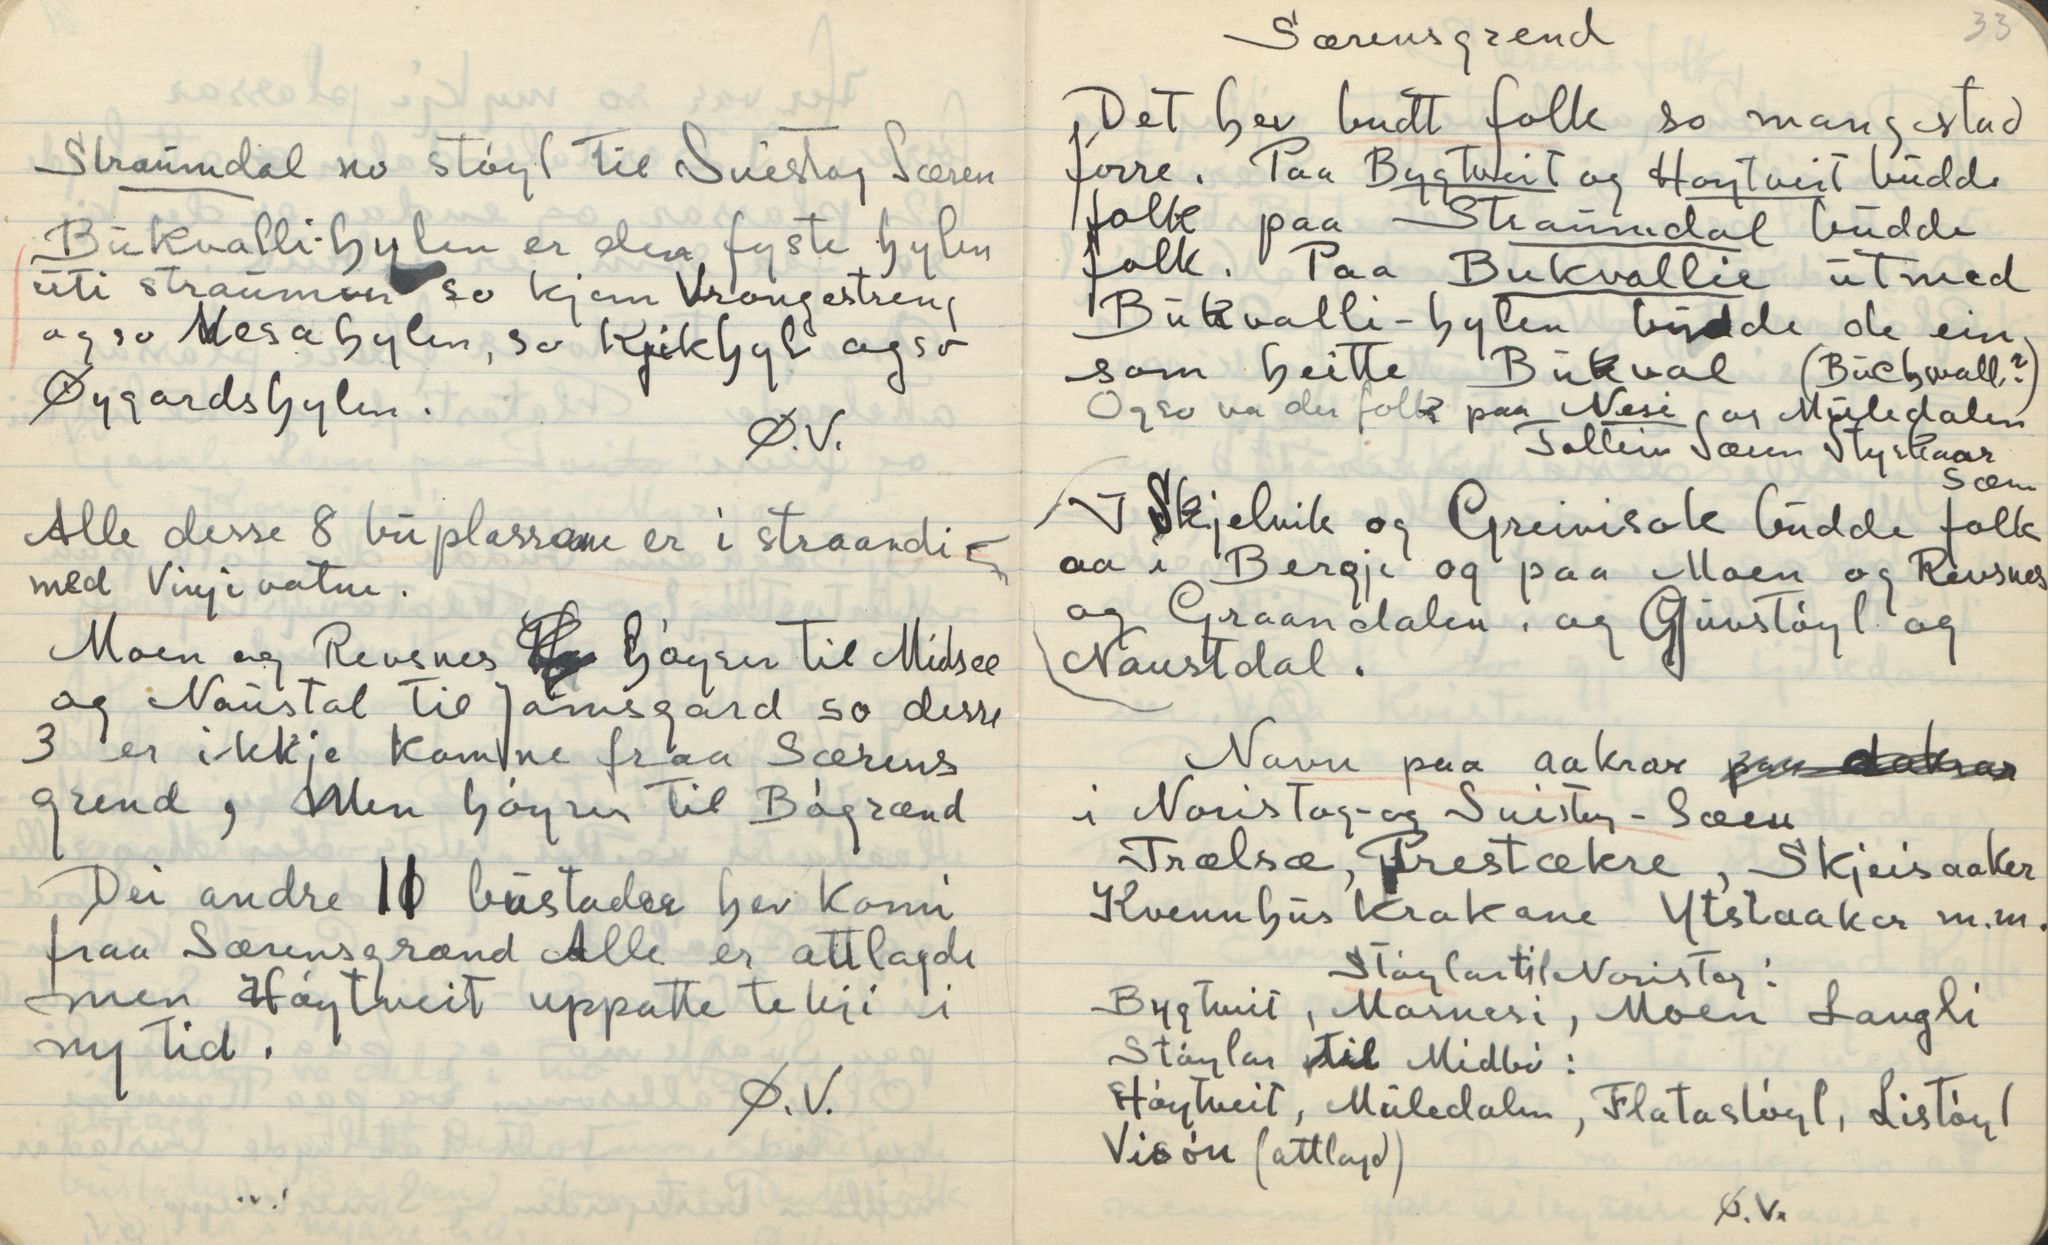 Straumdal no støyl til Suistog Særen
Bukvalli-hylen er den fyste hylen
uti straumen so kjem Vrongestreng
og so Nesahylen, so Kjikhyl og so
Øygardshylen.
Ø.V.
Alle desse 8 buplassane er i straandi
med Vinjevatne.
Moen og Revsnes høyrer til Midsæ
og Naustal til Jamsgard so desse
3 er ikkje komne fraa Særens
grend, Men høyrer til Bøgrænd
Dei andre 11 bustader hev komi
fraa Særensgrænd Alle er attlagde
men Høytveit uppatte tekji i
ny tid.
Ø.V.
33
Særensgrend
Det hev budt folk so mangestad
førre. Paa Bygtveit og Høytveit budde
folk paa Straumdal budde
folk. Paa Bukvallie utmed
Bukvalli-hylen budde de ein
som heitte Bukval (Buchwall?)
Ogso va der folk paa Nesi og Muledalen
Tallein Særen Styskaar
Sæm
I Skjelvik og Greivisok budde folk
aa i Bergji og paa Moen og Revsnes
og Graandalen. og Gjuvstøyl og
Naustdal.
Navn paa aakrar paa aakrar
i Noristog- og Suistog - Sæen
Trælsæ, Prestækre, Skjeisaaker
Kvennhuskrakane Ytstaaker m.m.
Støylar til Noristog:
Bygtveit, Mosnesi, Moen Langli
Støylar til Midbø:
Høytveit, Muledalen, Flatastøyl, Listøyl
Visøn (attlagd)
Ø.V.